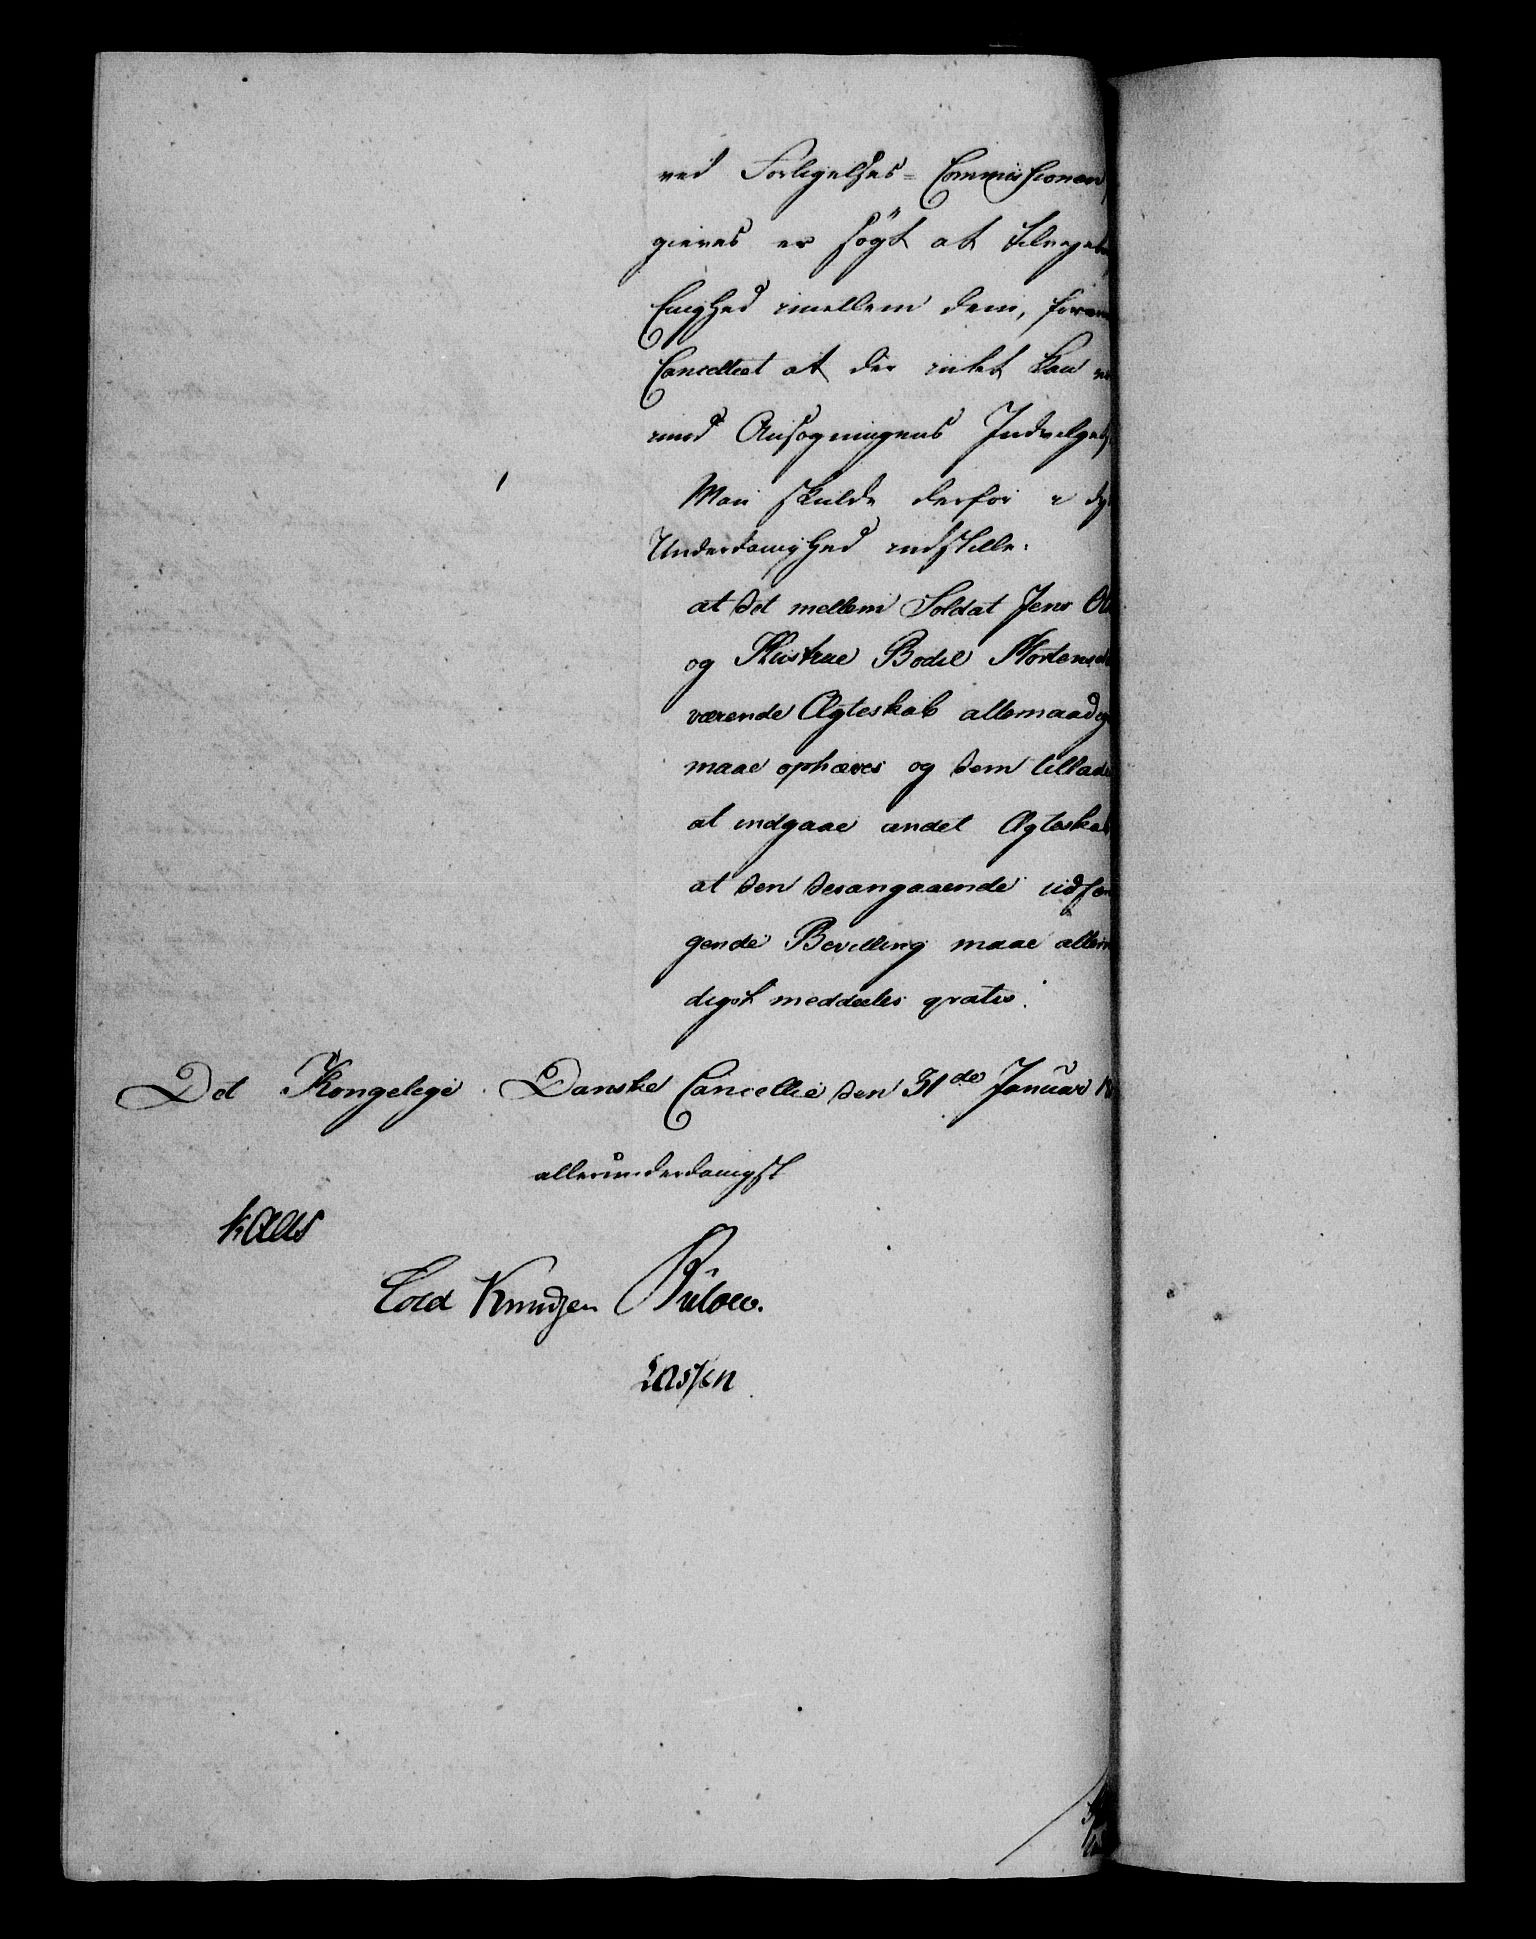 ved Forligelses-Commissionen
gieves er søgt at tilveje
Enighed imellem dem,
Cancelliet at der intet kan
mod Ansøgningens Indvilgel
Man skulde derfor i dy
Underdanighed indstille:
at det mellem Soldat Jens
og Hustrue Bodil Mortensd
værende Ægteskab allernaadig
maae ophæves og dem tillade
at indgaae andet Ægteskab
at den desangaaende udfær
gende Bevilling maae allern
digst meddeeles gratis.
Det Kongelige Danske Cancellie den 31de Januar 18
allerunderdanigst
Kaas
Cold Knudsen Bülow.
Lassen